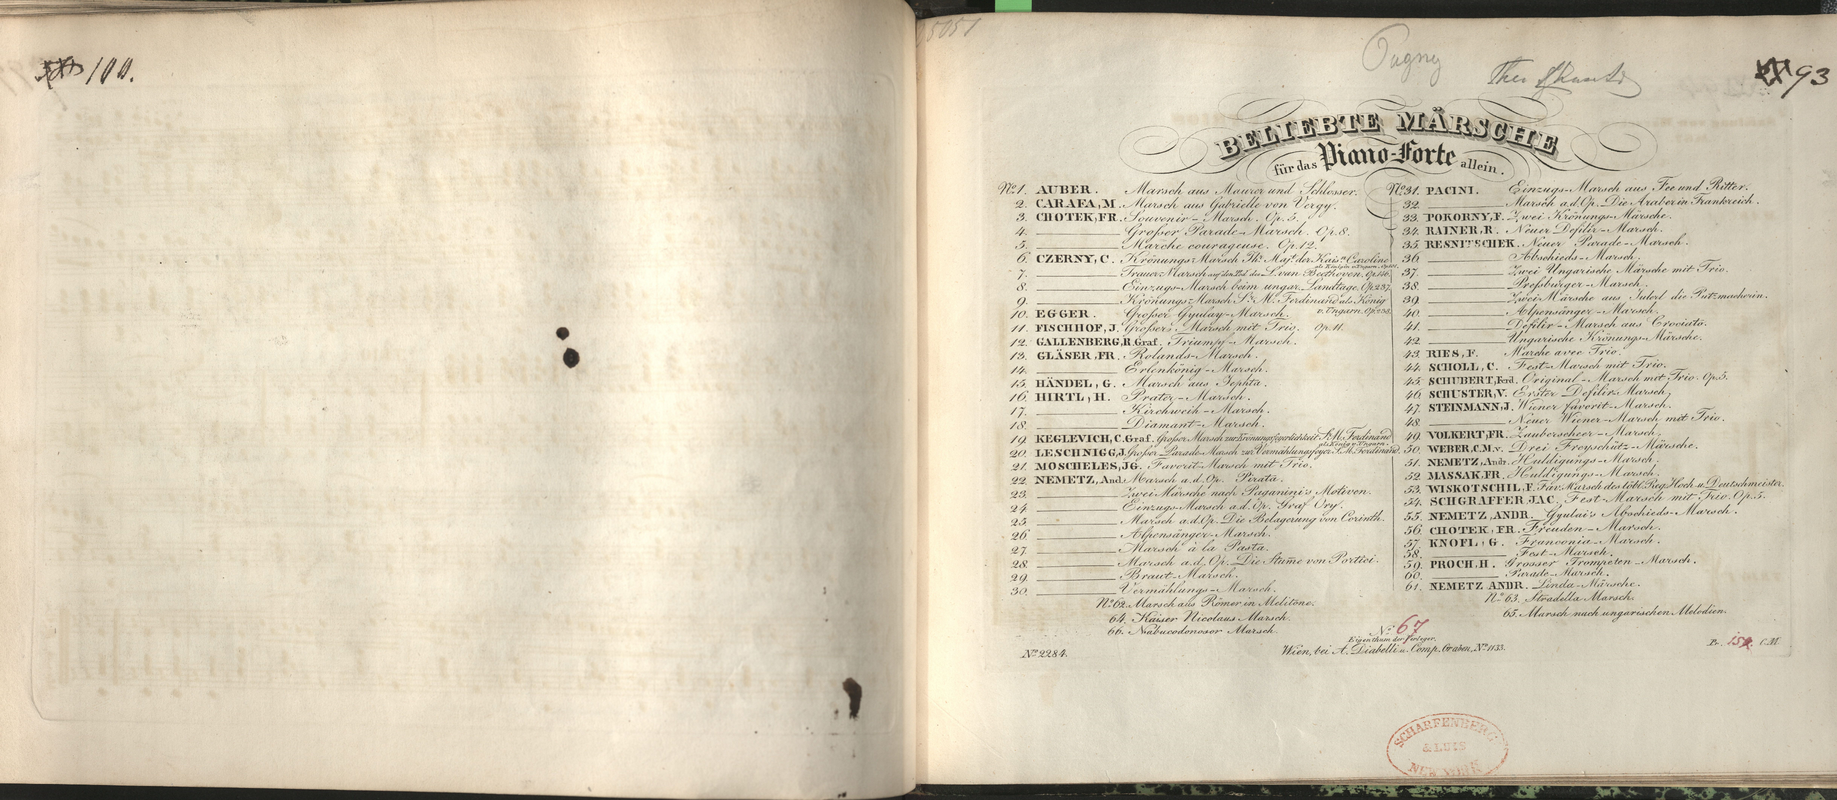 100.
5051
Pugny
93
BELIEBTE MÄRSCHE
für das Piano-Forte allein.
No 1. AUBER. Marsch aus Maurer und Schlosser.
2. CARAFA, M. Marsch aus Gabrielle von Vergy.
3. CHOTEK, FR. Souvenir-Marsch. Op. 5.
4. ——— Grosser Parade-Marsch. Op. 8.
5. ——— Marche courageuse. Op. 12.
6. CZERNY, C. Krönungs-Marsch Ihr. Maj. der Kais.n Caroline als Königin v. Ungarn.
7. ——— Trauer-Marsch auf den Tod des L. van Beethoven. Op. 146.
8. ——— Einzugs-Marsch beim ungar. Landtage. Op. 237.
9. ——— Krönungs-Marsch Sr. M. Ferdinand als König v. Ungarn. Op. 238.
10. EGGER. Grosser Gyulay-Marsch.
11. FISCHHOF, J. Grosser Marsch mit Trio. Op. 11.
12. GALLENBERG, R. Graf. Triumpf-Marsch.
13. GLÄSER, FR. Rolands-Marsch.
14. ——— Erlenkönig-Marsch.
15. HÄNDEL, G. Marsch aus Jephta.
16. HIRTL, H. Prater-Marsch.
17. ——— Kirchweih-Marsch.
18. ——— Diamant-Marsch.
19. KEGLEVICH, C. Graf. Grosser Marsch zur Krönungsfeyerlichkeit S. M. Ferdinand als König v. Ungarn.
20. LESCHNIGG, J. Grosser Parade-Marsch zur Vermählungsfeyer S. M. Ferdinand.
21. MOSCHELES, JG. Favorit-Marsch mit Trio.
22. NEMETZ, And. Marsch a. d. Op. Pirata.
23. ——— Zwei Märsche nach Paganini's Motiven.
24. ——— Einzugs-Marsch a. d. Op. Graf Ory.
25. ——— Marsch a. d. Op. Die Belagerung von Corinth.
26. ——— Alpensänger-Marsch.
27. ——— Marsch à la Pasta.
28. ——— Marsch a. d. Op. Die Stum̄e von Portici.
29. ——— Braut-Marsch.
30. ——— Vermählungs-Marsch.
No 31. PACINI. Einzugs-Marsch aus Fee und Ritter.
32. ——— Marsch a. d. Op. Die Araber in Frankreich.
33. POKORNY, F. Zwei Krönungs-Märsche.
34. RAINER, R. Neuer Defilir-Marsch.
35. RESNITSCHEK. Neuer Parade-Marsch.
36. ——— Abschieds-Marsch.
37. ——— Zwei Ungarische Märsche mit Trio.
38. ——— Pressburger-Marsch.
39. ——— Zwei Märsche aus Julerl die Putzmacherin.
40. ——— Alpensänger-Marsch.
41. ——— Defilir-Marsch aus Crociato.
42. ——— Ungarische Krönungs-Märsche.
43. RIES, F. Marche avec Trio.
44. SCHOLL, C. Fest-Marsch mit Trio.
45. SCHUBERT, Ferd. Original-Marsch mit Trio. Op. 5.
46. SCHUSTER, V. Erster Defilir-Marsch.
47. STEINMANN, J. Wiener favorit-Marsch.
48. ——— Neuer Wiener-Marsch mit Trio.
49. VOLKERT, FR. Zauberscheer-Marsch.
50. WEBER, C. M. v. Drei Freyschütz-Märsche.
51. NEMETZ, Andr. Huldigungs-Marsch.
52. MASSAK, FR. Huldigungs-Marsch.
53. WISKOTSCHIL, F. Fav. Marsch des löbl. Reg. Hoch u. Deutschmeister.
54. SCHGRAFFER JAC. Fest-Marsch mit Trio. Op. 5.
55. NEMETZ, ANDR. Gyulai's Abschieds-Marsch.
56. CHOTEK, FR. Freuden-Marsch.
57. KNOFL, G. Franconia-Marsch.
58. ——— Fest-Marsch.
59. PROCH, H. Grosser Trompeten-Marsch.
60. ——— Parade-Marsch.
61. NEMETZ ANDR. Linda-Märsche.
No 62. Marsch aus Römer in Melitone.
No 63. Stradella Marsch.
64. Kaiser Nicolaus Marsch.
65. Marsch nach ungarischen Melodien.
66. Nabucodonosor Marsch.
No 67
Eigenthum der Verleger.
No 2284.
Wien, bei A. Diabelli u. Comp. Graben, No 1133.
Pr. 15 x. C.M.
SCHARFENBERG
& LUIS
NEW YORK